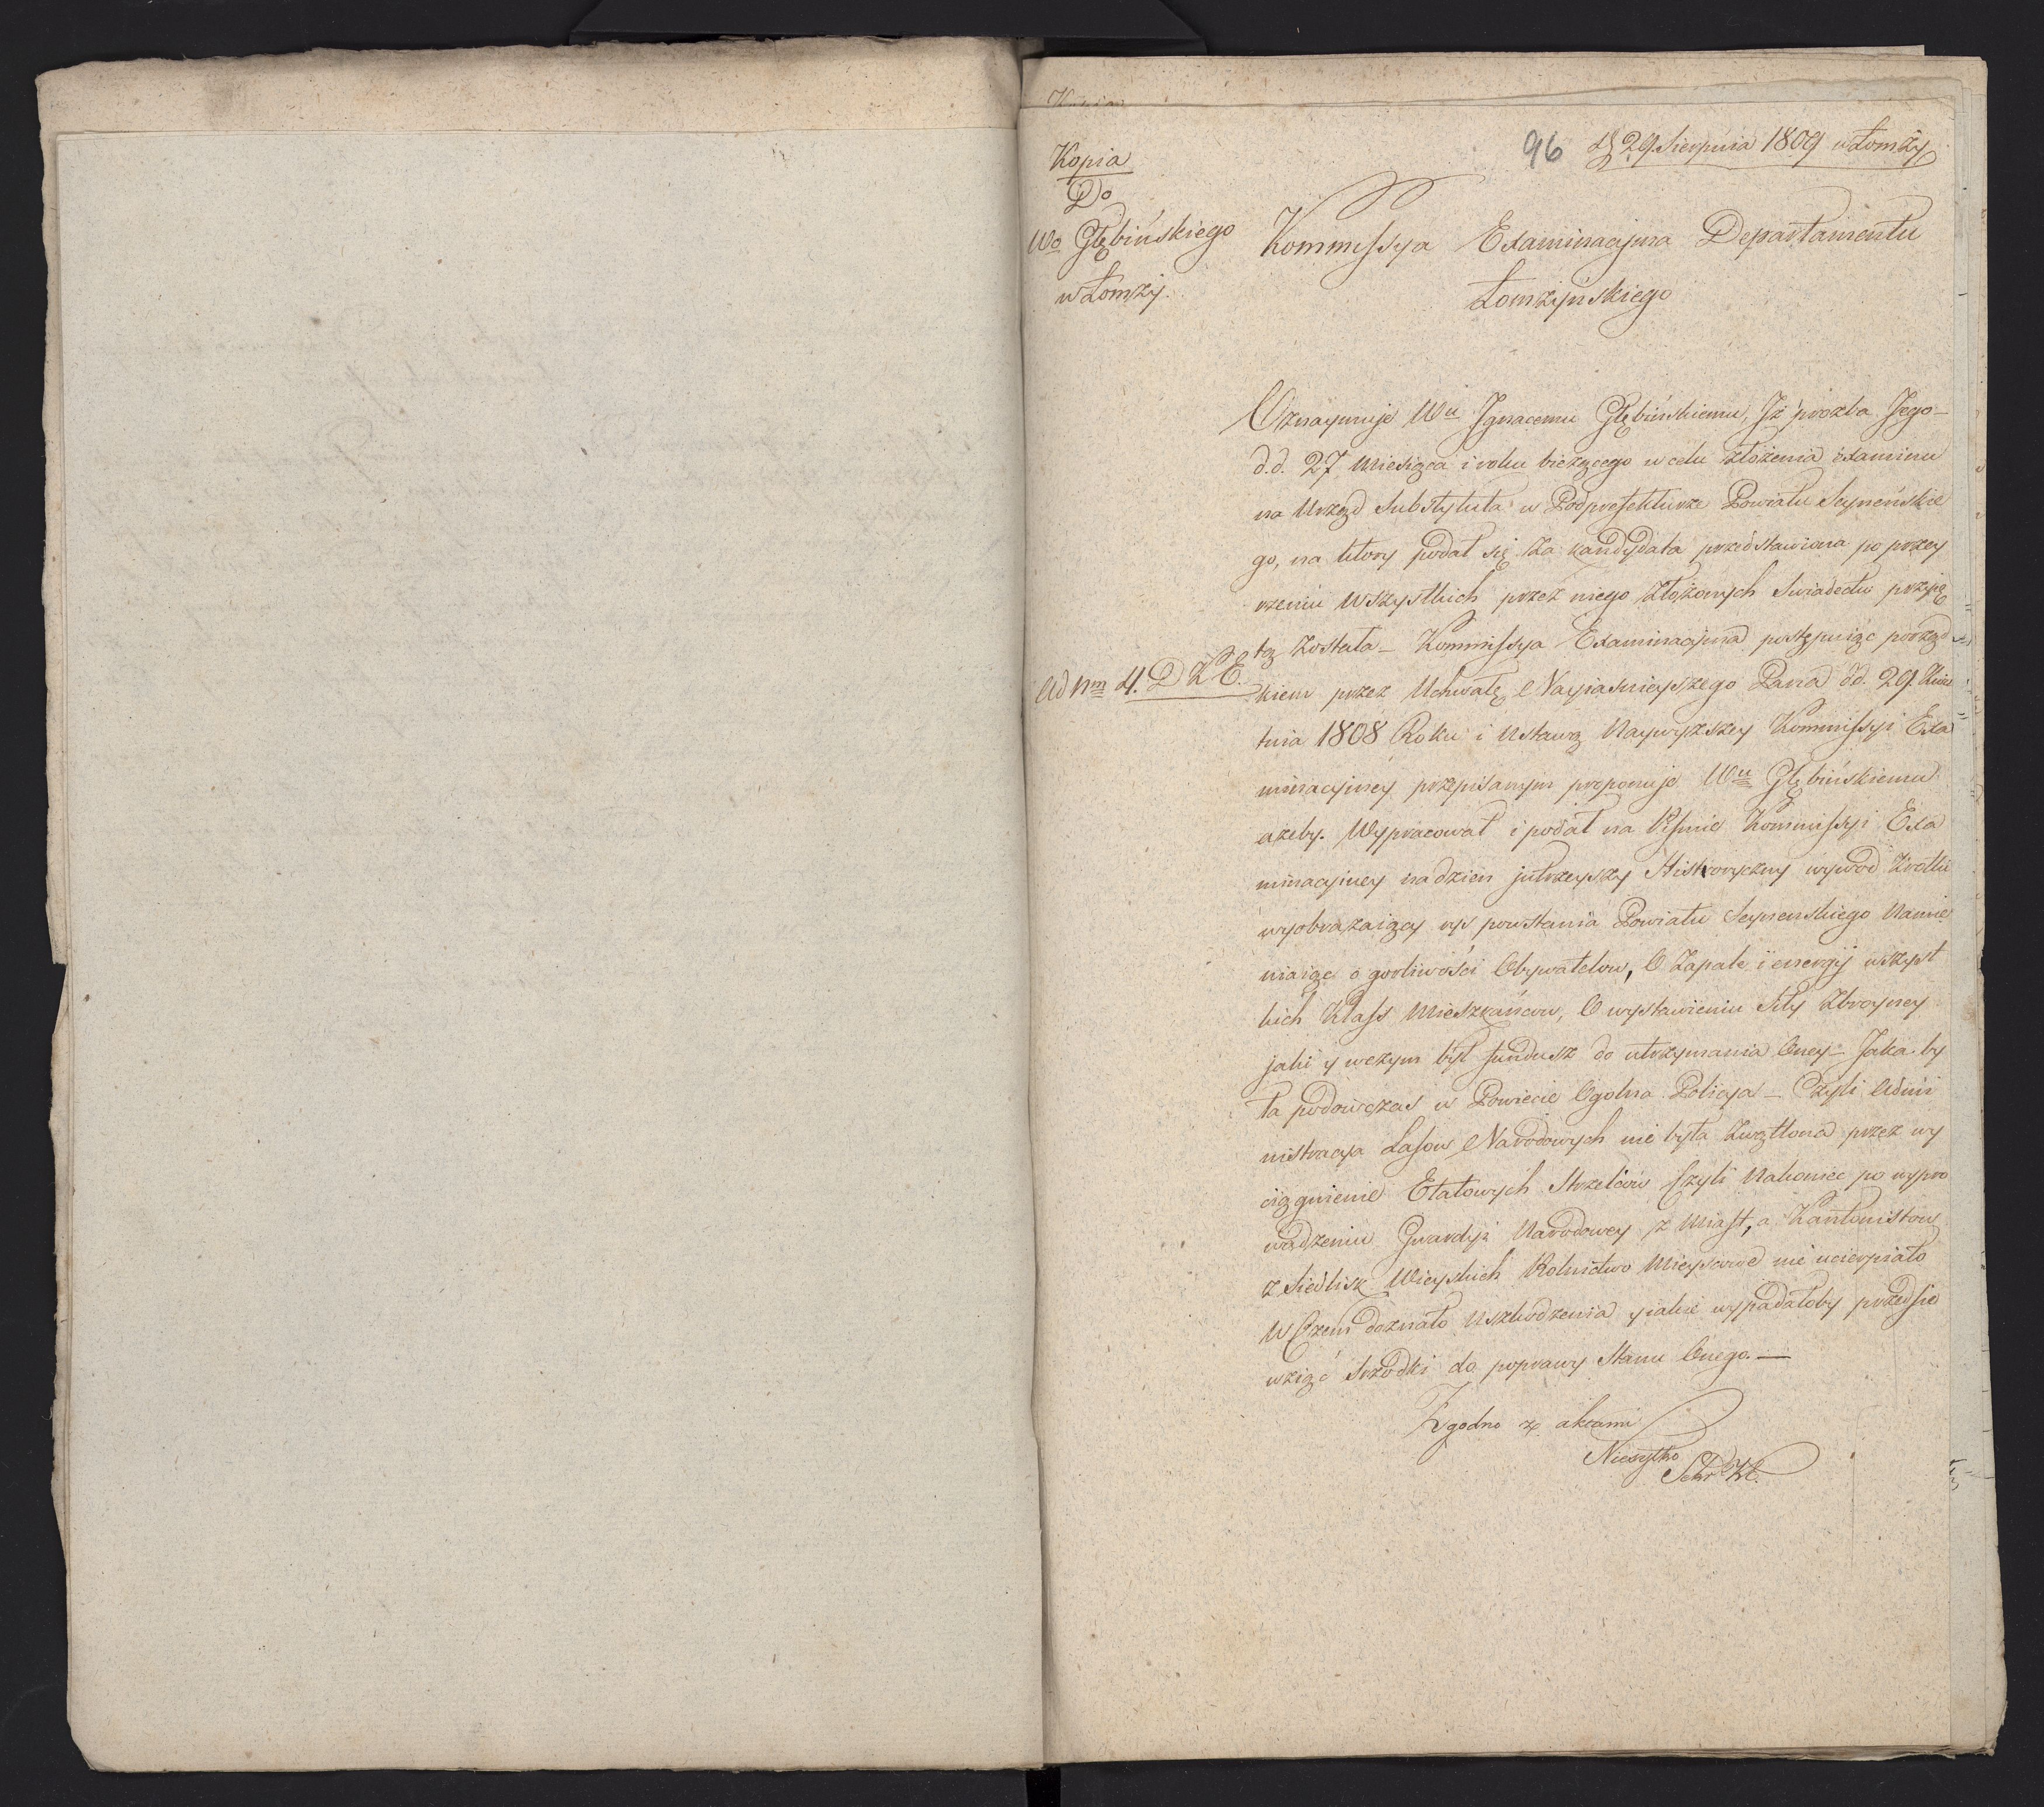 Kopia
96 d 29 Sierpnia 1809 w Łomży
Kopia
Do
Wo Głębińskiego
w Łomży.
Kommissya Examinacyjna Departamentu
Łomżyńskiego
Oznaymuje Wu Ignacemu Głębińskiemu, Iż prozba Jego
d.d. 27 Miesiąca i roku bieżącego w celu złożenia examinu
na Urząd Substytuta w Podprefekturze Powiatu Seyneńskie
go, na który podał się za kandydata przedstawiona po przey
rzeniu wszystkich przez niego złożonych Swiadectw przyię
tą została – Kommissya Examinacyjna postępuiąc porząd
Ad Nm 4. D K E.
kiem przez Uchwałę Nayiasnieyszego Pana dd. 29. Kwie
tnia 1808 Roku i Ustawą Naywyższey Kommissyi Exa
minacyjney przepisanym proponuje Wu Głębińskiemu
ażeby. Wypracował i podał na Piśmie Kommissyi Exa
minacyjney na dzień jutrzeyszy Historyczny wywod krotki
wyobrażaiący rys powstania Powiatu Seynenskiego Namie
niaiąc o gorliwości Obywatelow, O Zapale i energij wszyst
kich Klass Mieszkańcow, O wystawieniu Siły Zbroyney
jaki y w czym był fundusz do utrzymania Oney – Jaka by
ła podowczas w Powiecie Ogolna Policya – Czyli Admi
nistracya Lasow Narodowych nie była Zwątlona przez wy
ciągnienie Etatowych Strzelców Czyli Nakoniec po wypro
wadzeniu Gwardyi Narodowey z Miast, a Kantonistow
z Siedlisk Wieyskich Rolnictwo Mieyscowe nie ucierpiało
W Czem doznało Uszkodzenia y iakie wypadałoby przedsie
wziąć Srzodki do poprawy Stanu Onego. —
Zgodno z aktami
Niesytko
Sekr KE.